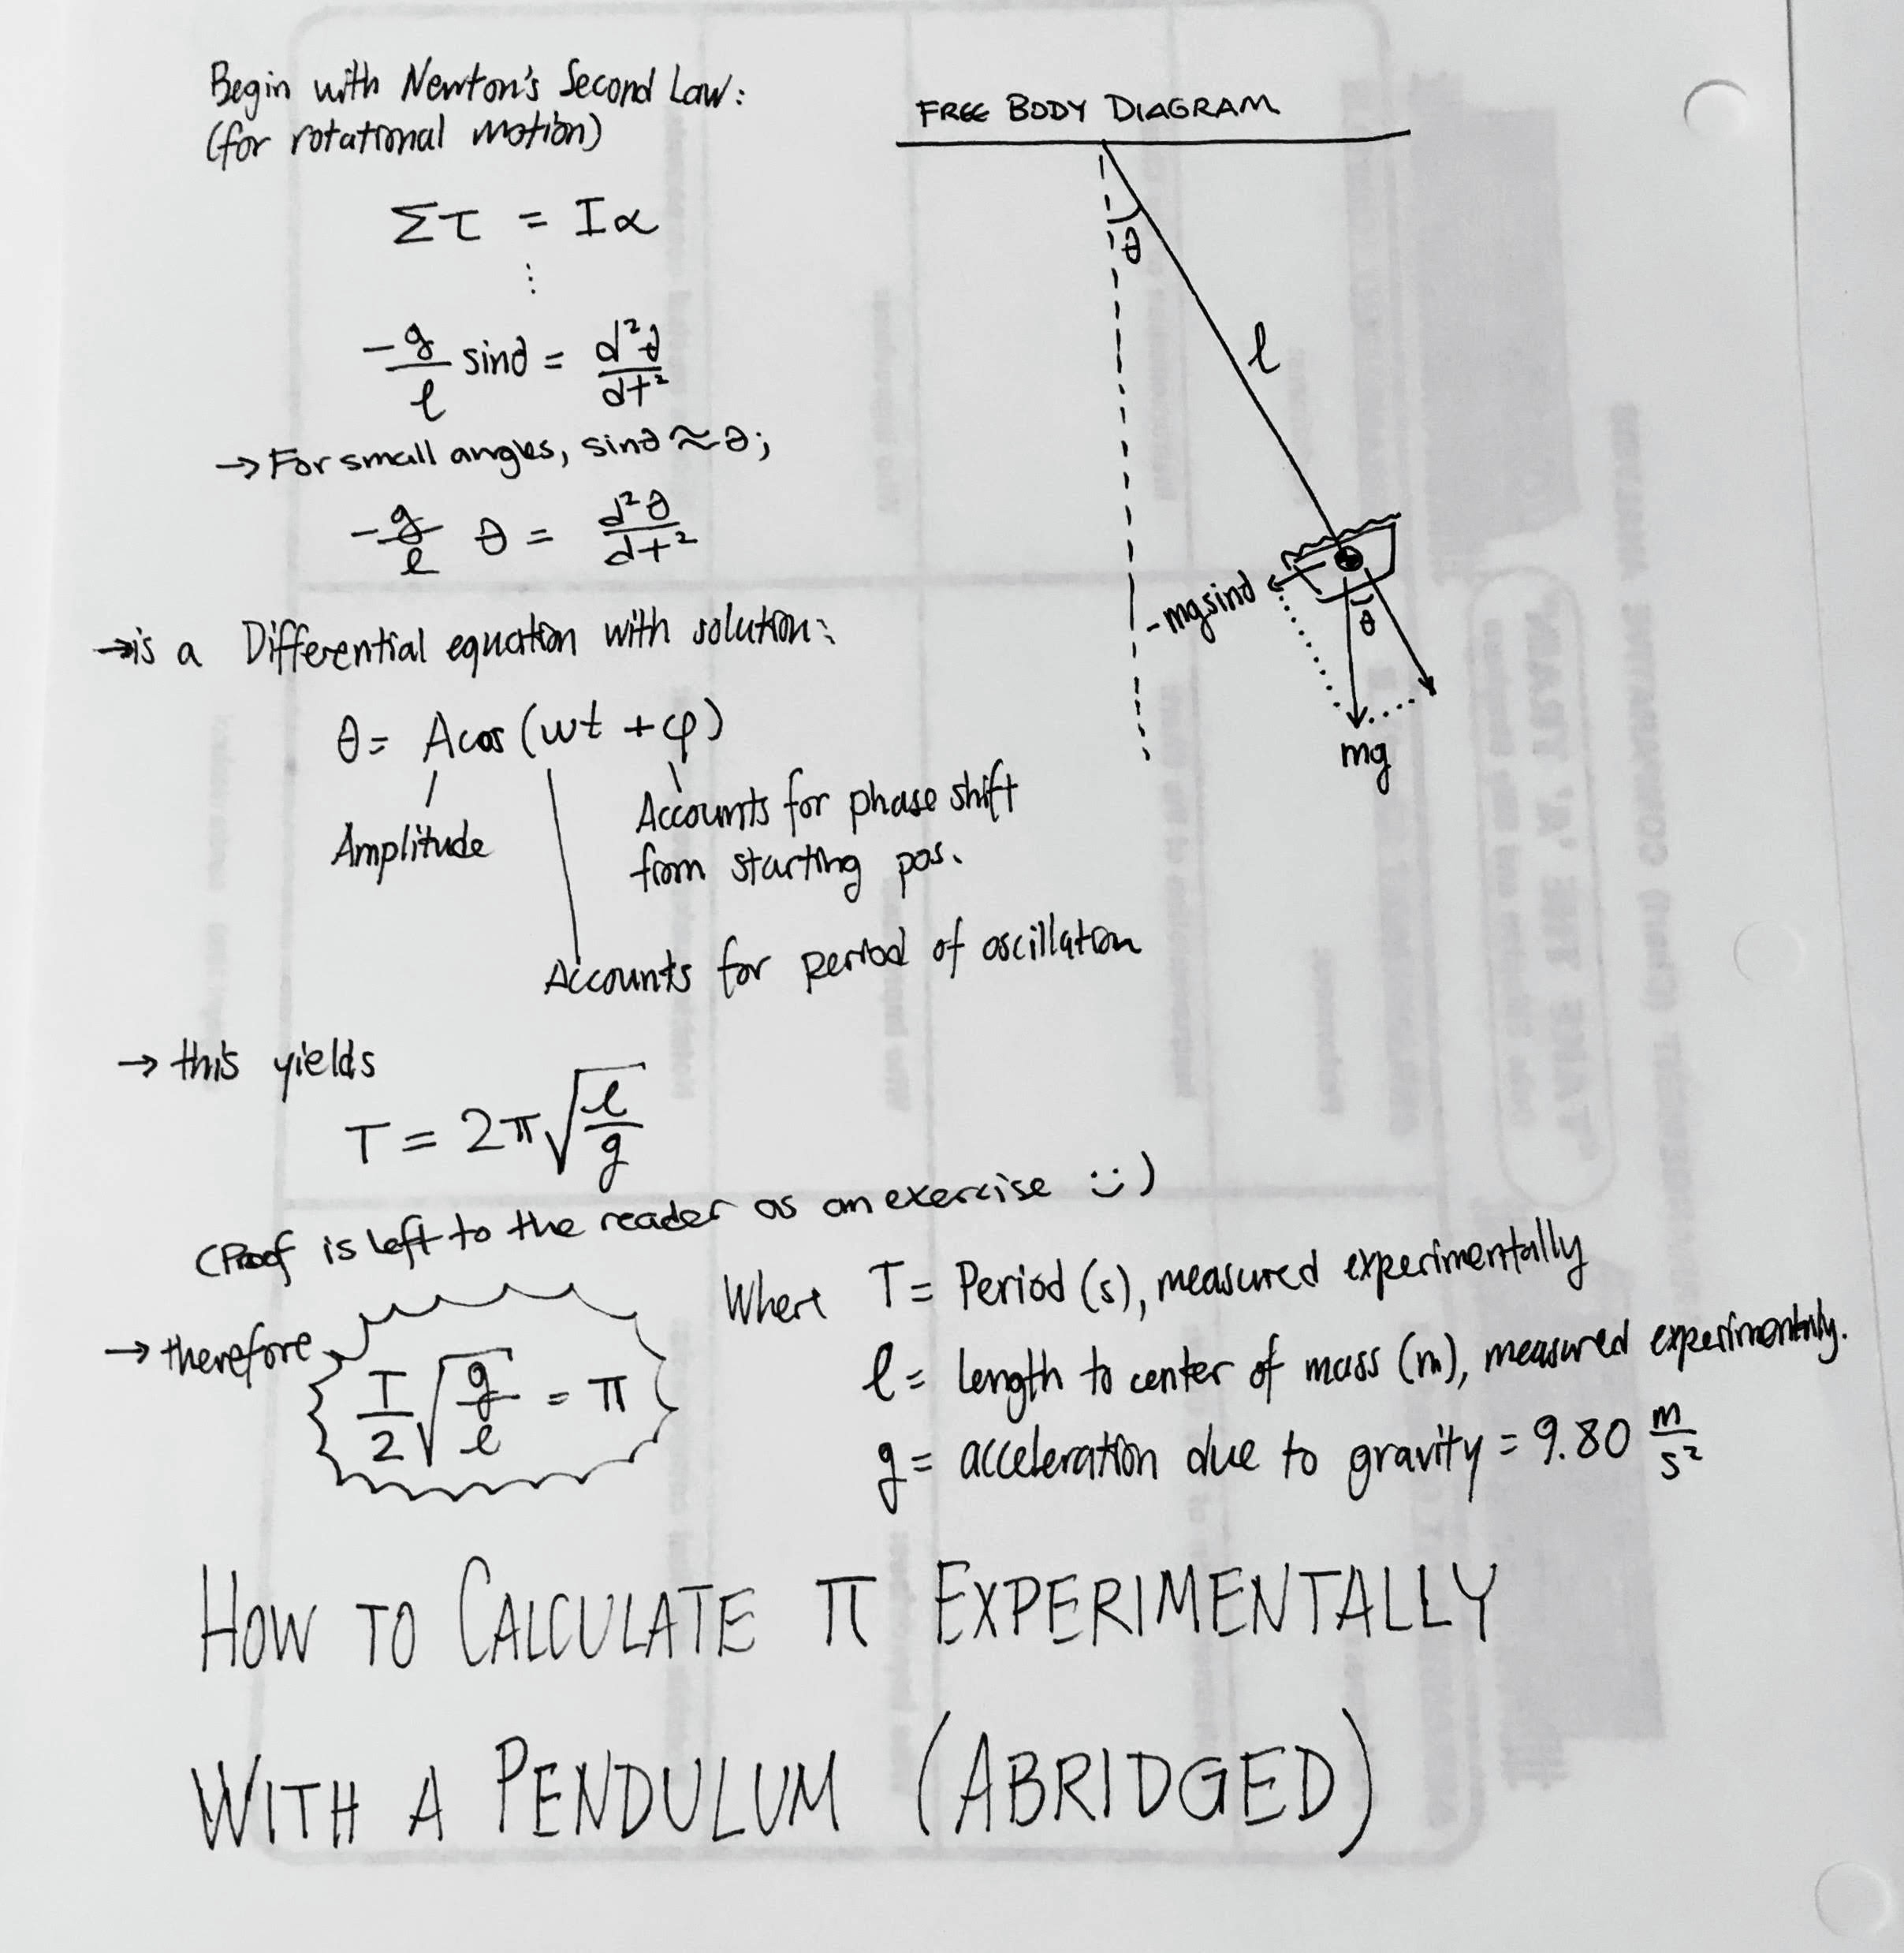 Begin with Newton's Second Law:
(for rotational motion)
Στ = Iα
⋮
-g/l sinθ = d²θ/dt²
→ For small angles, sinθ ≈ θ;
-g/l θ = d²θ/dt²
→ is a Differential equation with solution:
θ = Acos(wt + φ)
Amplitude
Accounts for phase shift
from starting pos.
Accounts for period of oscillation
→ this yields
T = 2π√(l/g)
(Proof is left to the reader as an exercise :))
→ therefore
T/2 √(g/l) = π
Where T = Period (s), measured experimentally
l = length to center of mass (m), measured experimentally.
g = acceleration due to gravity = 9.80 m/s²
FREE BODY DIAGRAM
θ
l
-mgsinθ
θ
mg
HOW TO CALCULATE π EXPERIMENTALLY
WITH A PENDULUM (ABRIDGED)